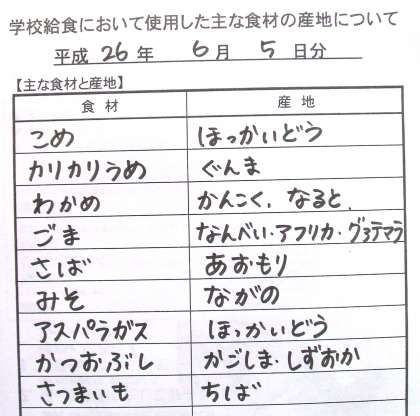 学校給食において使用した主な食材の産地について
平成 26 年 6 月 5 日分
【主な食材と産地】
食材 産地
こめ ほっかいどう
カリカリうめ ぐんま
わかめ かんこく、なると、
ごま なんべい・アフリカ・グアテマラ
さば あおもり
みそ ながの
アスパラガス ほっかいどう
かつおぶし かごしま・しずおか
さつまいも ちば